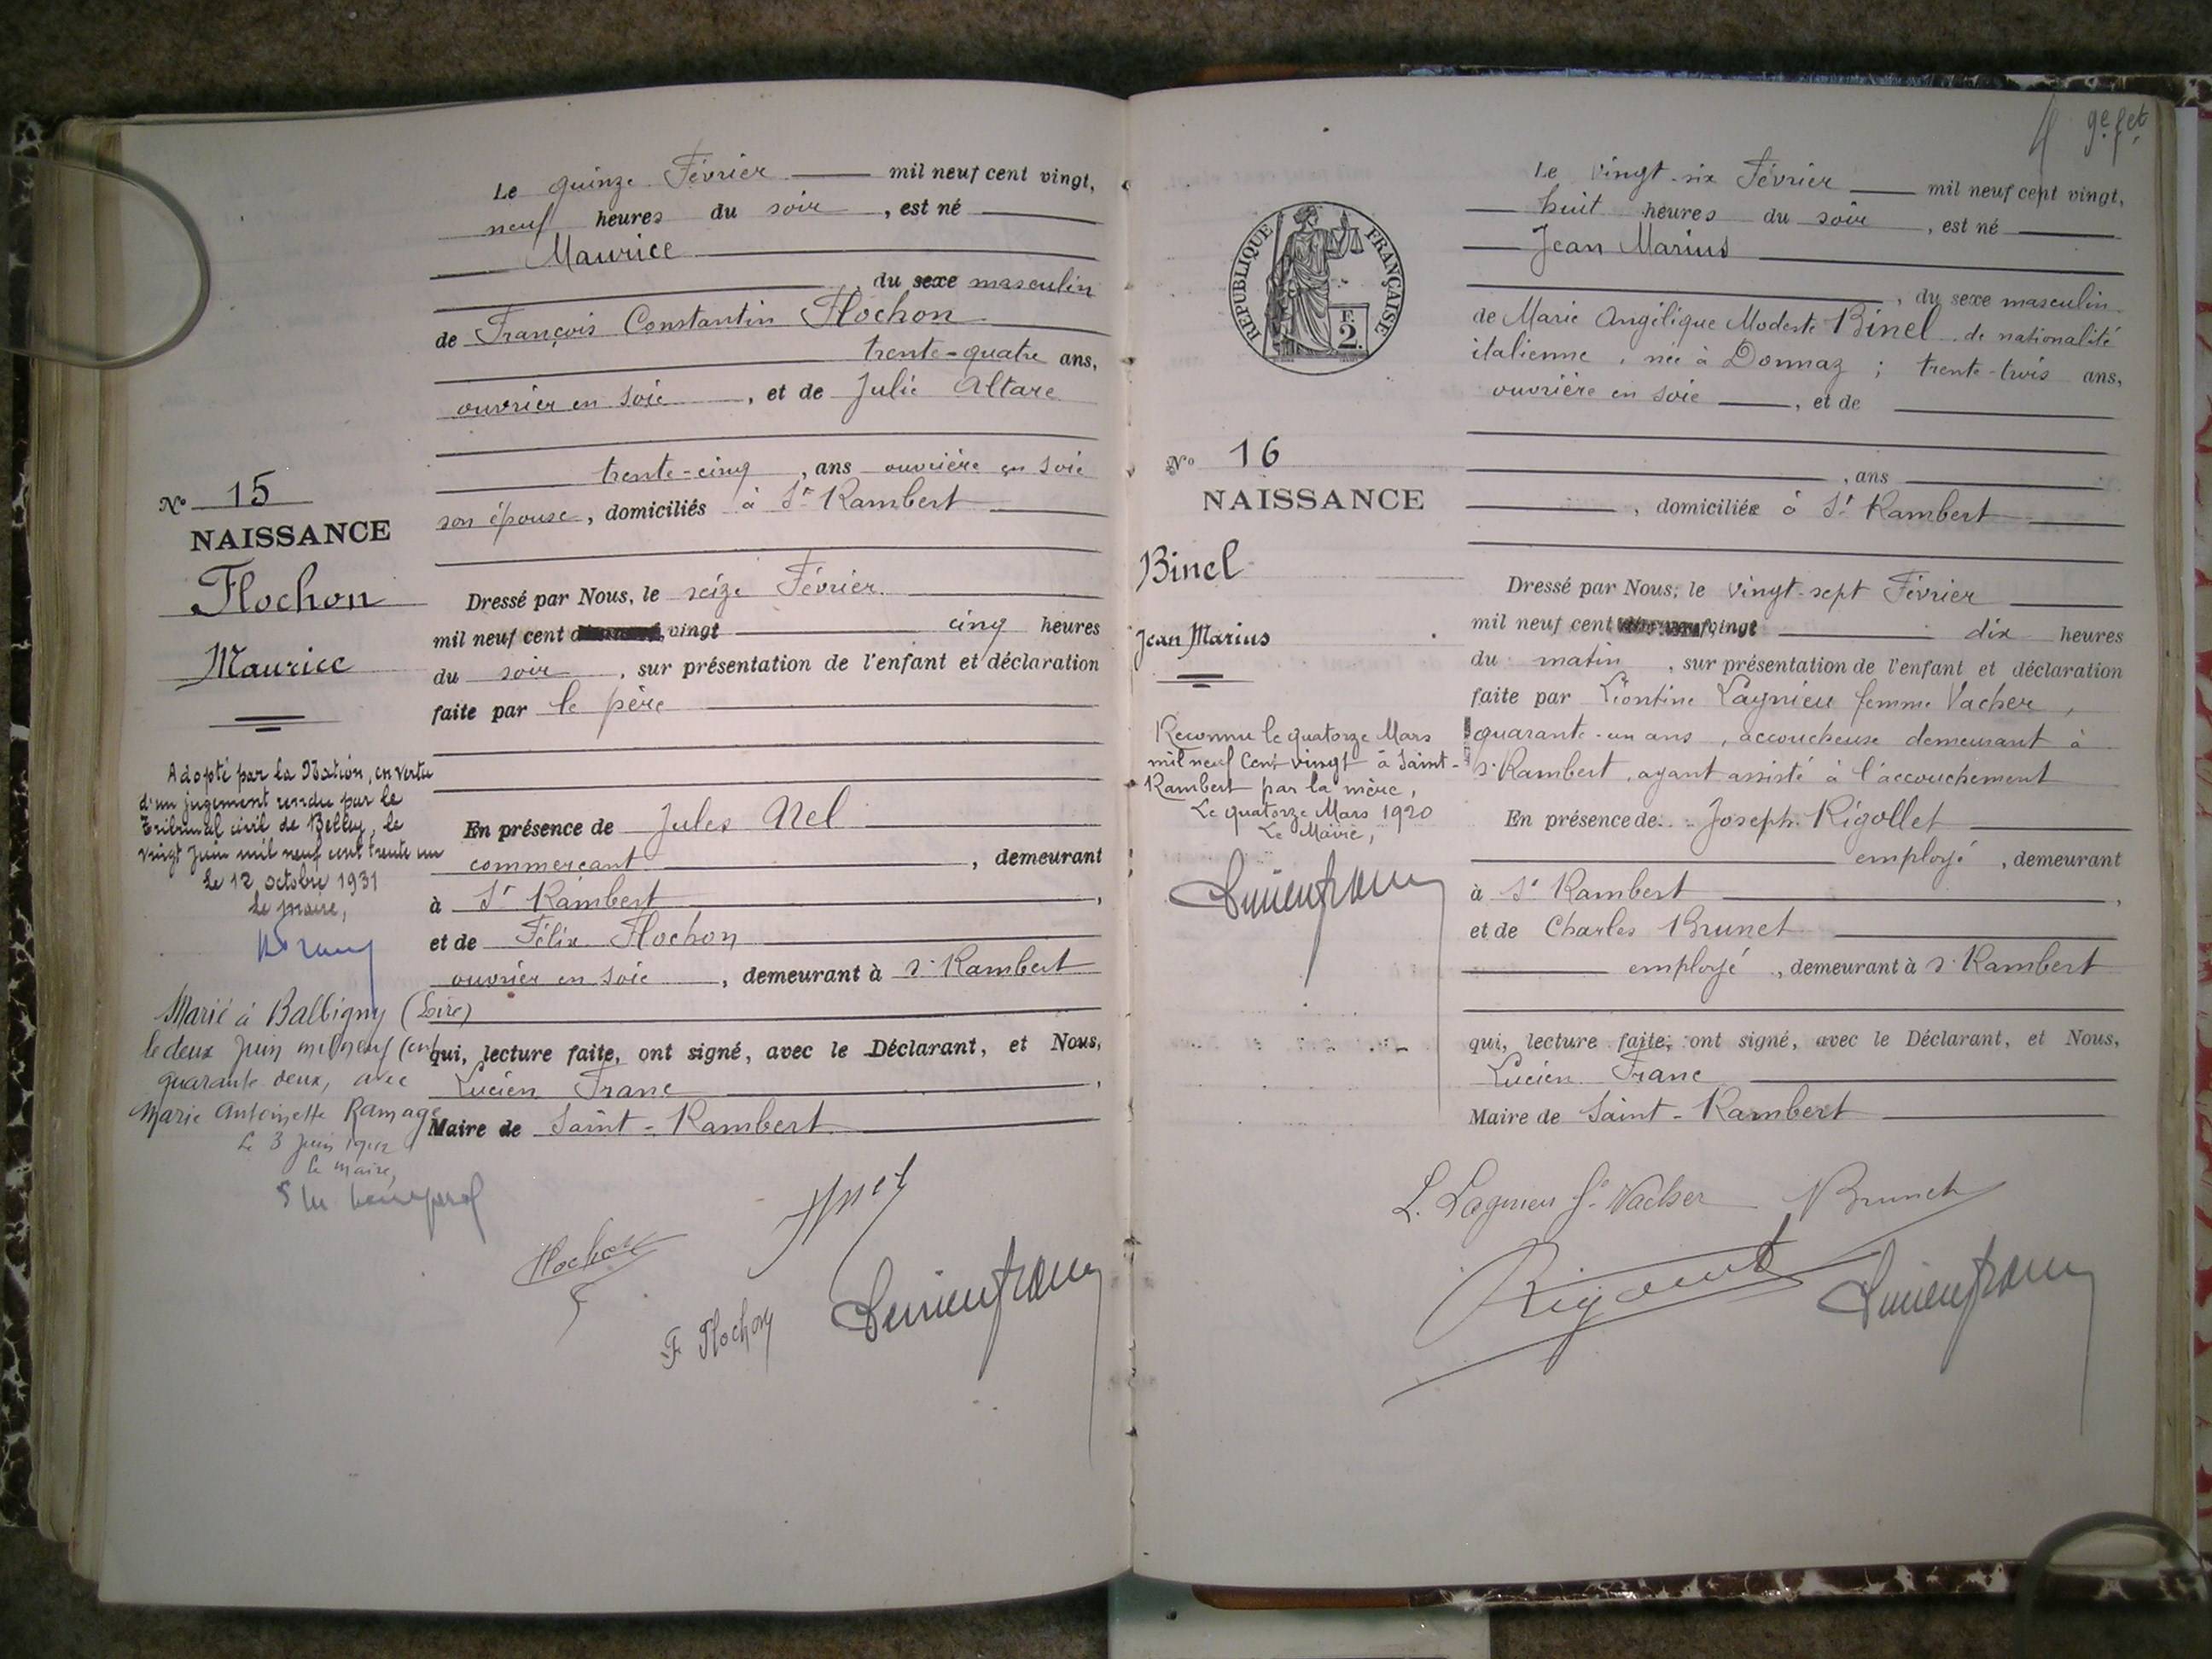 Le quinze Février mil neuf cent vingt,
neuf heures du soir, est né
Maurice
, du sexe masculin
de François Constantin Flochon
trente-quatre ans,
ouvrier en soie, et de Julie Altare
trente-cinq, ans ouvrière en soie
son épouse, domiciliés à St Rambert
Nº 15
NAISSANCE
Flochon
Maurice
Dressé par Nous, le seize Février
mil neuf cent vingt cinq heures
du soir, sur présentation de l'enfant et déclaration
faite par le père
Adopté par la Nation, en vertu
d'un jugement rendu par le
Tribunal civil de Belley, le
vingt Juin mil neuf cent trente un
Le 12 octobre 1931
Le maire,
En présence de Jules Nel
commerçant, demeurant
à St Rambert,
et de Félix Flochon
ouvrier en soie, demeurant à St Rambert
Marié à Balbigny (Loire)
le deux Juin mil neuf cent
quarante deux, avec
Marie Antoinette Ramage
Le 3 Juin 1942
Le maire,
qui, lecture faite, ont signé, avec le Déclarant, et Nous,
Lucien Franc,
Maire de Saint-Rambert
Flochon
F Flochon
Lucien Franc
9e fet
RÉPUBLIQUE FRANÇAISE
F.
2.
Le vingt-six Février mil neuf cent vingt,
huit heures du soir, est né
Jean Marius
, du sexe masculin
de Marie Angélique Modeste Binel, de nationalité
italienne, née à Donnaz; trente-trois ans,
ouvrière en soie, et de
, ans
, domiciliée à St Rambert
Nº 16
NAISSANCE
Binel
Jean Marius
Reconnu le quatorze Mars
mil neuf cent vingt à Saint-
Rambert par la mère,
Le quatorze Mars 1920
Le Maire,
Lucien Franc
Dressé par Nous, le vingt-sept Février
mil neuf cent vingt dix heures
du matin, sur présentation de l'enfant et déclaration
faite par Léontine Lagnieu femme Vacher,
quarante-un ans, accoucheuse demeurant à
St Rambert, ayant assisté à l'accouchement
En présence de Joseph Rigollet
employé, demeurant
à St Rambert,
et de Charles Brunet
employé, demeurant à St Rambert
qui, lecture faite, ont signé, avec le Déclarant, et Nous,
Lucien Franc
Maire de Saint-Rambert
L. Lagnieu fe Vacher Brunet
Lucien Franc